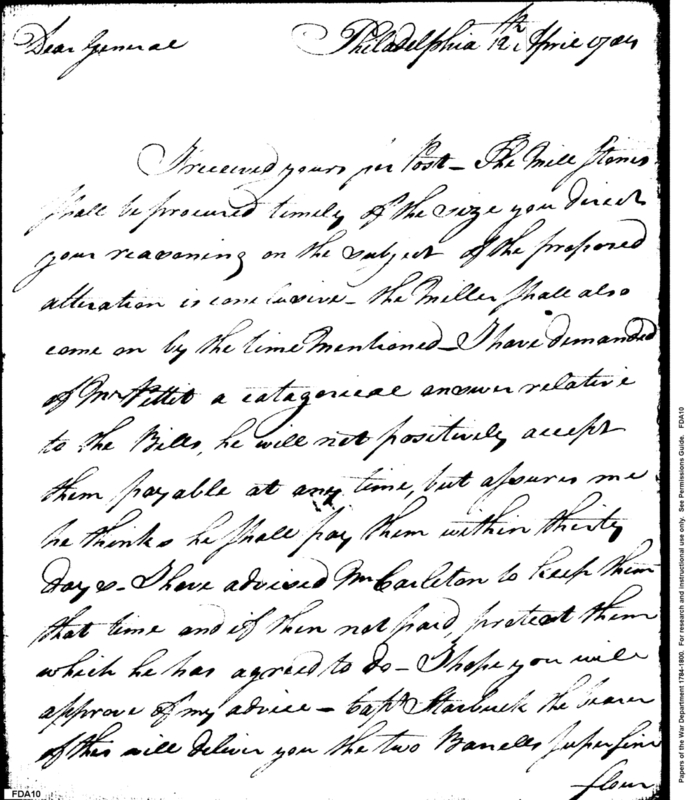 Dear General
Philadelphia 12th April 1784
I received yours per Post – The Mill Stones
shall be procured timely of the size you direct
your reasoning on the subject of the proposed
alteration is conclusive – the Miller shall also
come on by the time Mentioned – I have demanded
of Mr Pettet a catagorical answer relative
to the Bills, he will not positively accept
them payable at any time, but assures me
he thinks he shall pay them within thirty
days – I have advised Mr Carleton to keep them
that time and if then not paid, protest them
which he has agreed to do – I hope you will
approve of my advice – Capt Starbuck the bearer
of this will deliver you the two Barrells Superfine
flour
FDA10
Papers of the War Department 1784-1800. For research and instructional use only. See Permissions Guide. FDA10